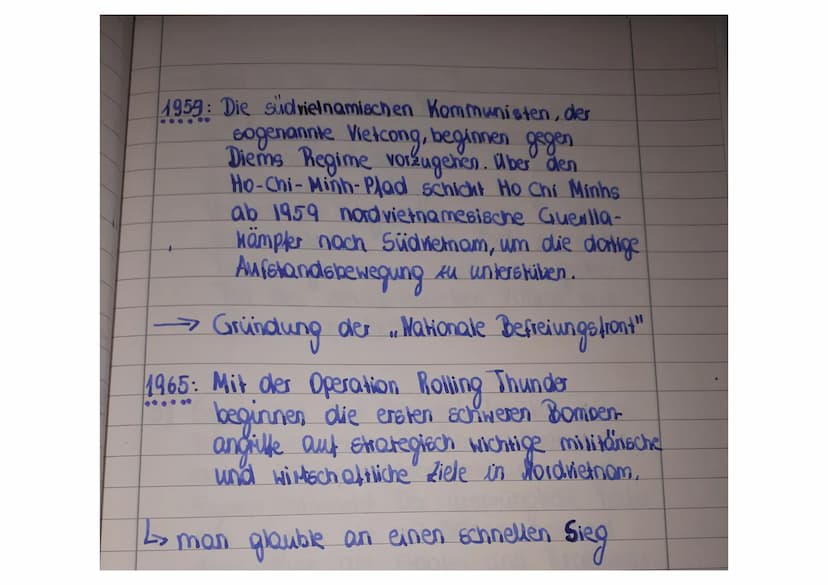 1959: Die südvietnamischen Kommunisten, der
sogenannte Vietcong, beginnen gegen
Diems Regime vorzugehen. Über den
Ho-Chi-Minh-Pfad schickt Ho Chi Minhs
ab 1959 nordvietnamesische Guerilla-
kämpfer nach Südvietnam, um die dortige
Aufstandsbewegung zu unterstüben.
→ Gründung der „Nationale Befreiungsfront"
1965: Mit der Operation Rolling Thunder
beginnen die ersten schweren Bomben-
angriffe auf strategisch wichtige militärische
und wirtschaftliche Ziele in Nordvietnam.
↳ man glaubte an einen schnellen Sieg